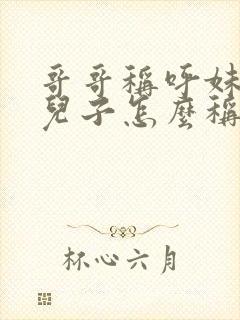 哥哥稱呼妹
兒子怎麼稱
杯心六月